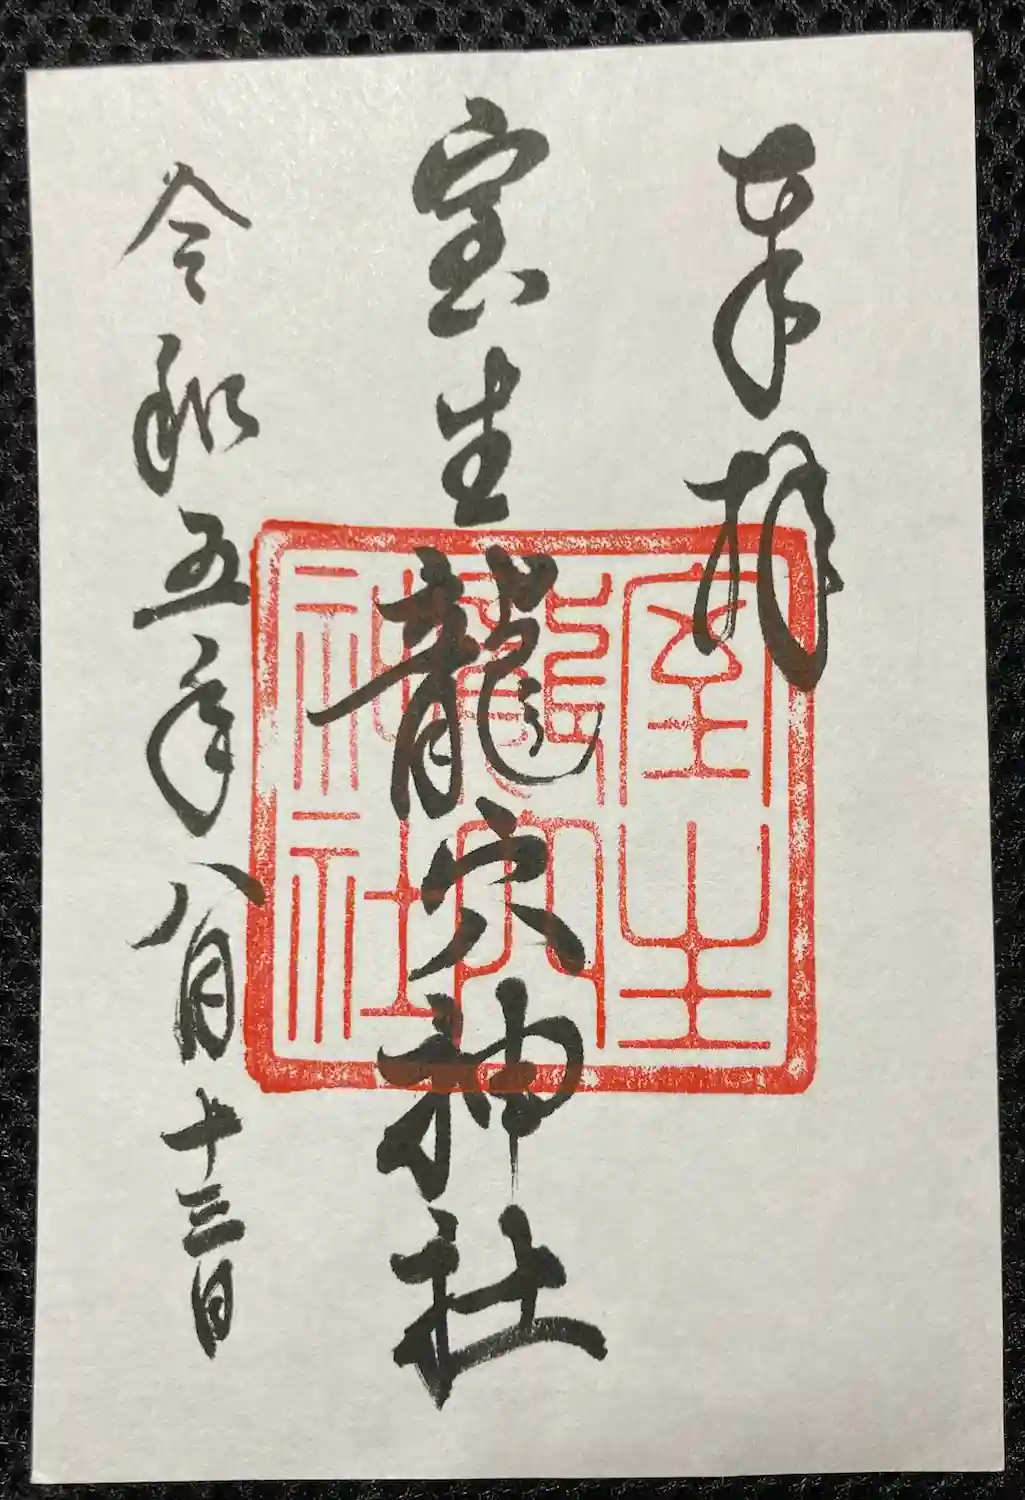 奉拝
室生龍穴神社
令和五年八月十三日
室生
龍穴
神社